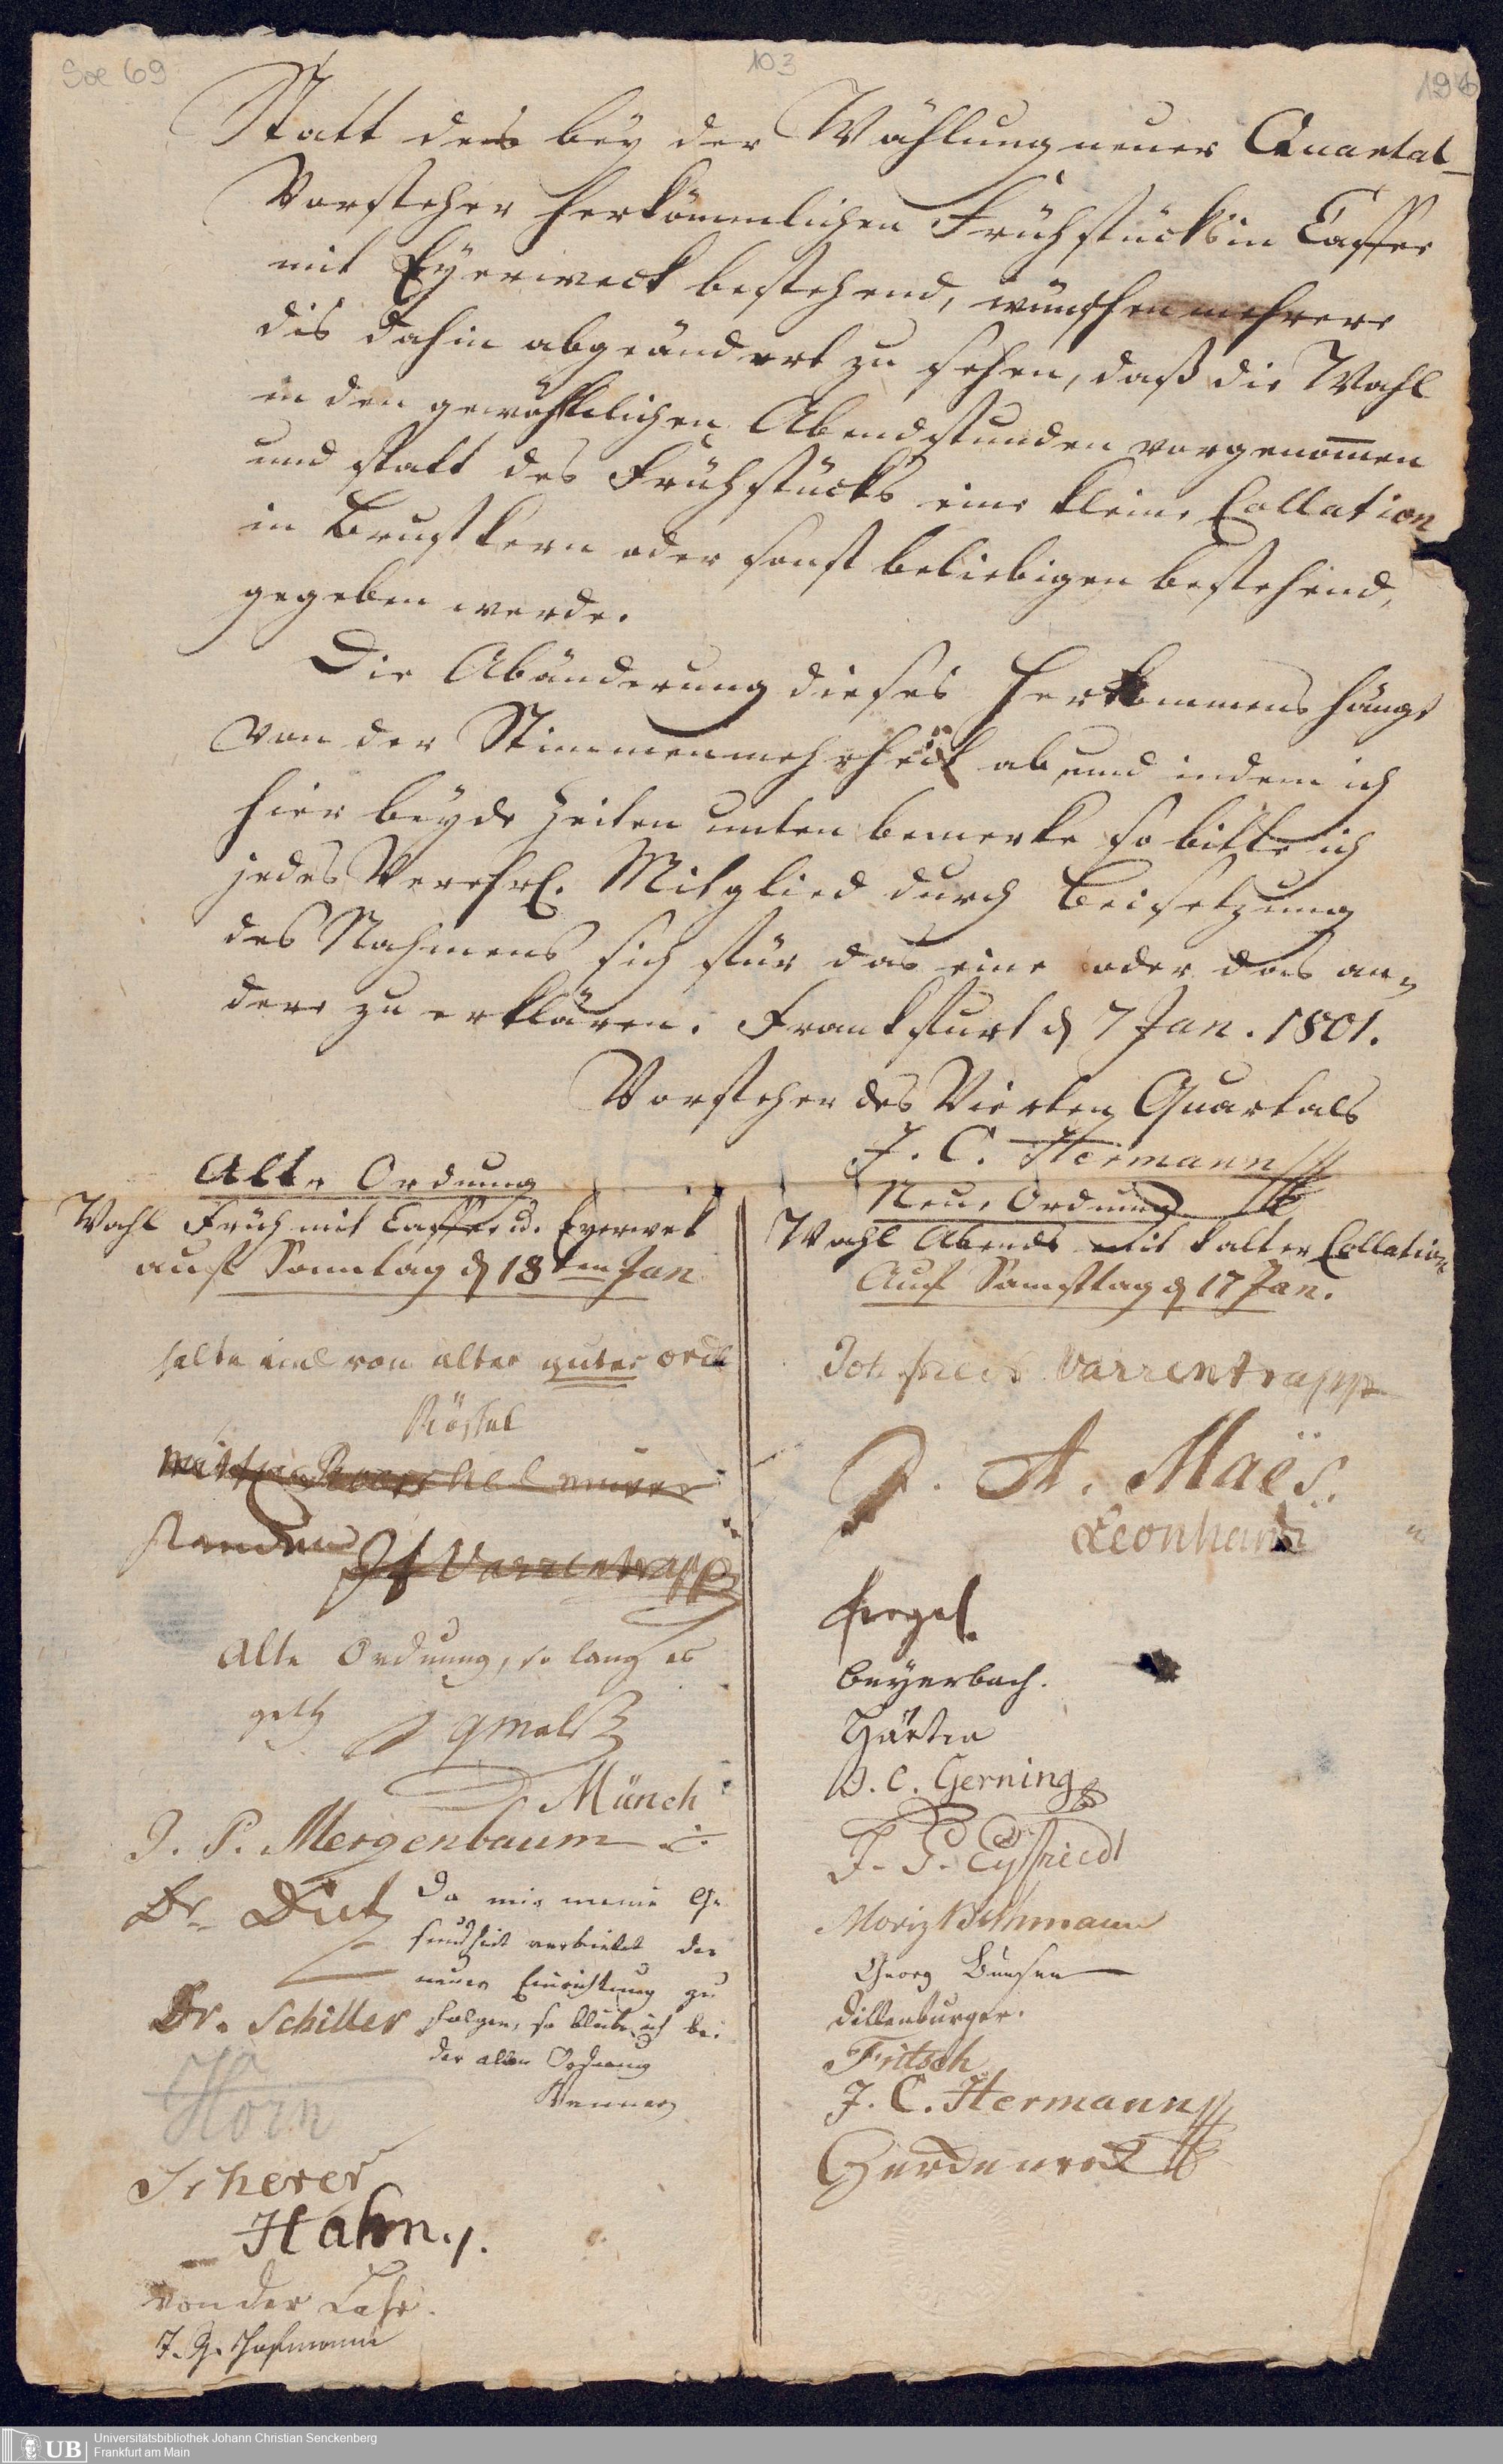 Soc 69
103
194
Statt des bey der Wählung neuer Quartal-
Vorsteher herkömmlichen Frühstücks in Caffee
mit Eyerweck bestehend, wünschen mehrere
dis dahin abgeändert zu sehen, daß die Wahl
in den gewöhnlichen Abendstunden vorgenom̅en
und statt des Frühstücks eine kleine Collation
in Brustkern oder sonst beliebigen bestehend,
gegeben werde.
Die Abänderung dieses Herkommens hängt
von der Stimmenmehrheit ab, und indem ich
hier beyde Zeiten unten bemerke so bitte ich
jedes Verehrl. Mitglied durch Beisetzung
des Nahmens sich für das eine oder das an-
dere zu erklären. Frankfurt d 7 Jan. 1801.
Vorsteher des Vierten Quartals
J. C. Hermann
Alte Ordnung
Wahl Früh mit Caffee u. Eyerwek
auf Sonntag d 18ten Jan
halte viel von alter guter ord
Röschel
mit Roeschel einver
standen JF Varrentrapp
Alte Ordnung, so lang es
geht
Münch
J. P. Mergenbaum
Dr. Dietz
Da mir meine Ge
sundheit verbietet der
neuen Einrichtung zu
folgen, so bleibe ich bei
der alten Ordnung
Wenner
Dr. Schiller
Horn
Scherer
Hahn.
von der Lahr.
J. G. Hofmann
Neue Ordnung
Wahl Abends mit kalter Collation
Auf Samstag d 17 Jan.
Joh Fried Varrentrapp
J. A. Maës.
Leonhardi
Beyerbach.
Härtin
J. C. Gerning
J. P. Eyssriedt
Moriz Bethmann
Georg Bunsen
Dillenburger.
Fritsch
J. C. Hermann
UB
Universitätsbibliothek Johann Christian Senckenberg
Frankfurt am Main